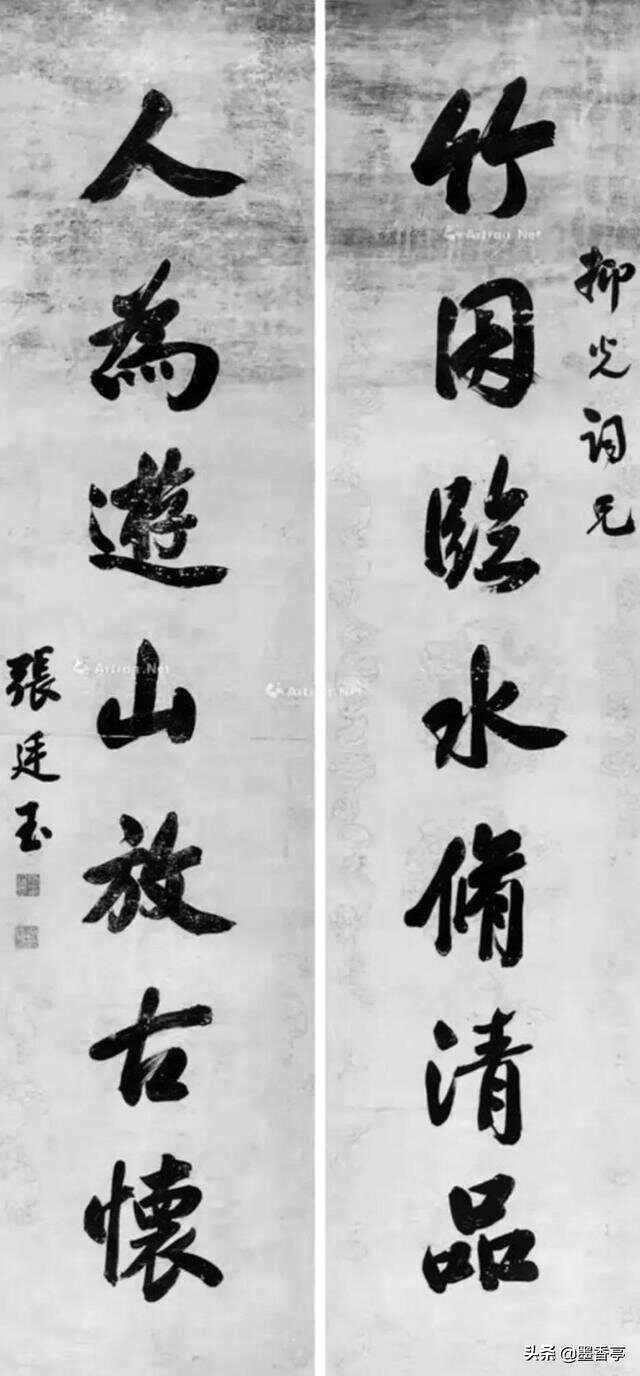 抑光詞兄
竹因臨水脩清品
人為遊山放古懷
張廷玉
Artron.Net
Artron.Net
Artron.Net
头条 @墨香亭